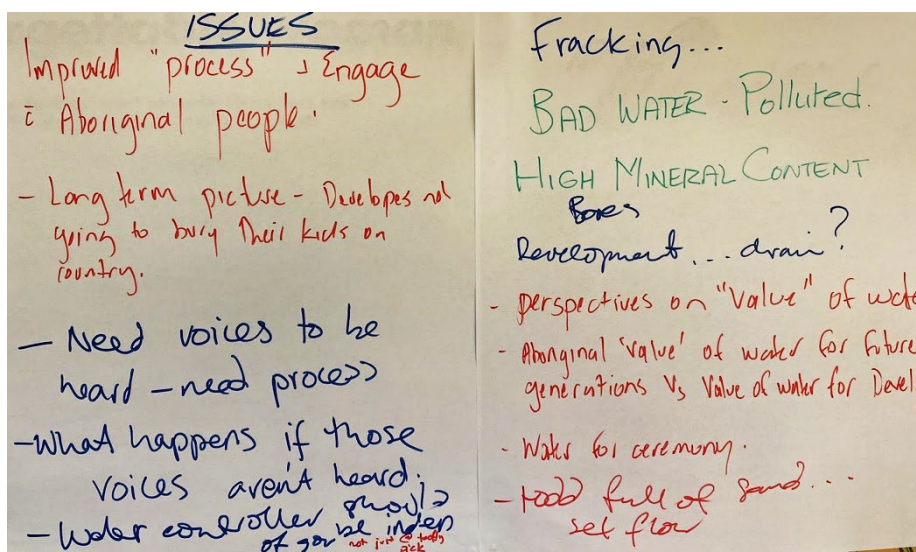 ISSUES
Improved "process" Engage
c̄ Aboriginal people.
- Long term picture - Developes not
going to bury their kids on
country.
- Need voices to be
heard - need process
- What happens if those
voices aren't heard.
- Water controller should
of gov be indep
not just
Fracking...
BAD WATER - Polluted.
HIGH MINERAL CONTENT
Bores
Development... drain?
- perspectives on "Value" of wate
- Aboriginal 'value' of water for future
generations Vs Value of water for Devel
- Water for ceremony.
- Todd full of sand...
set flow